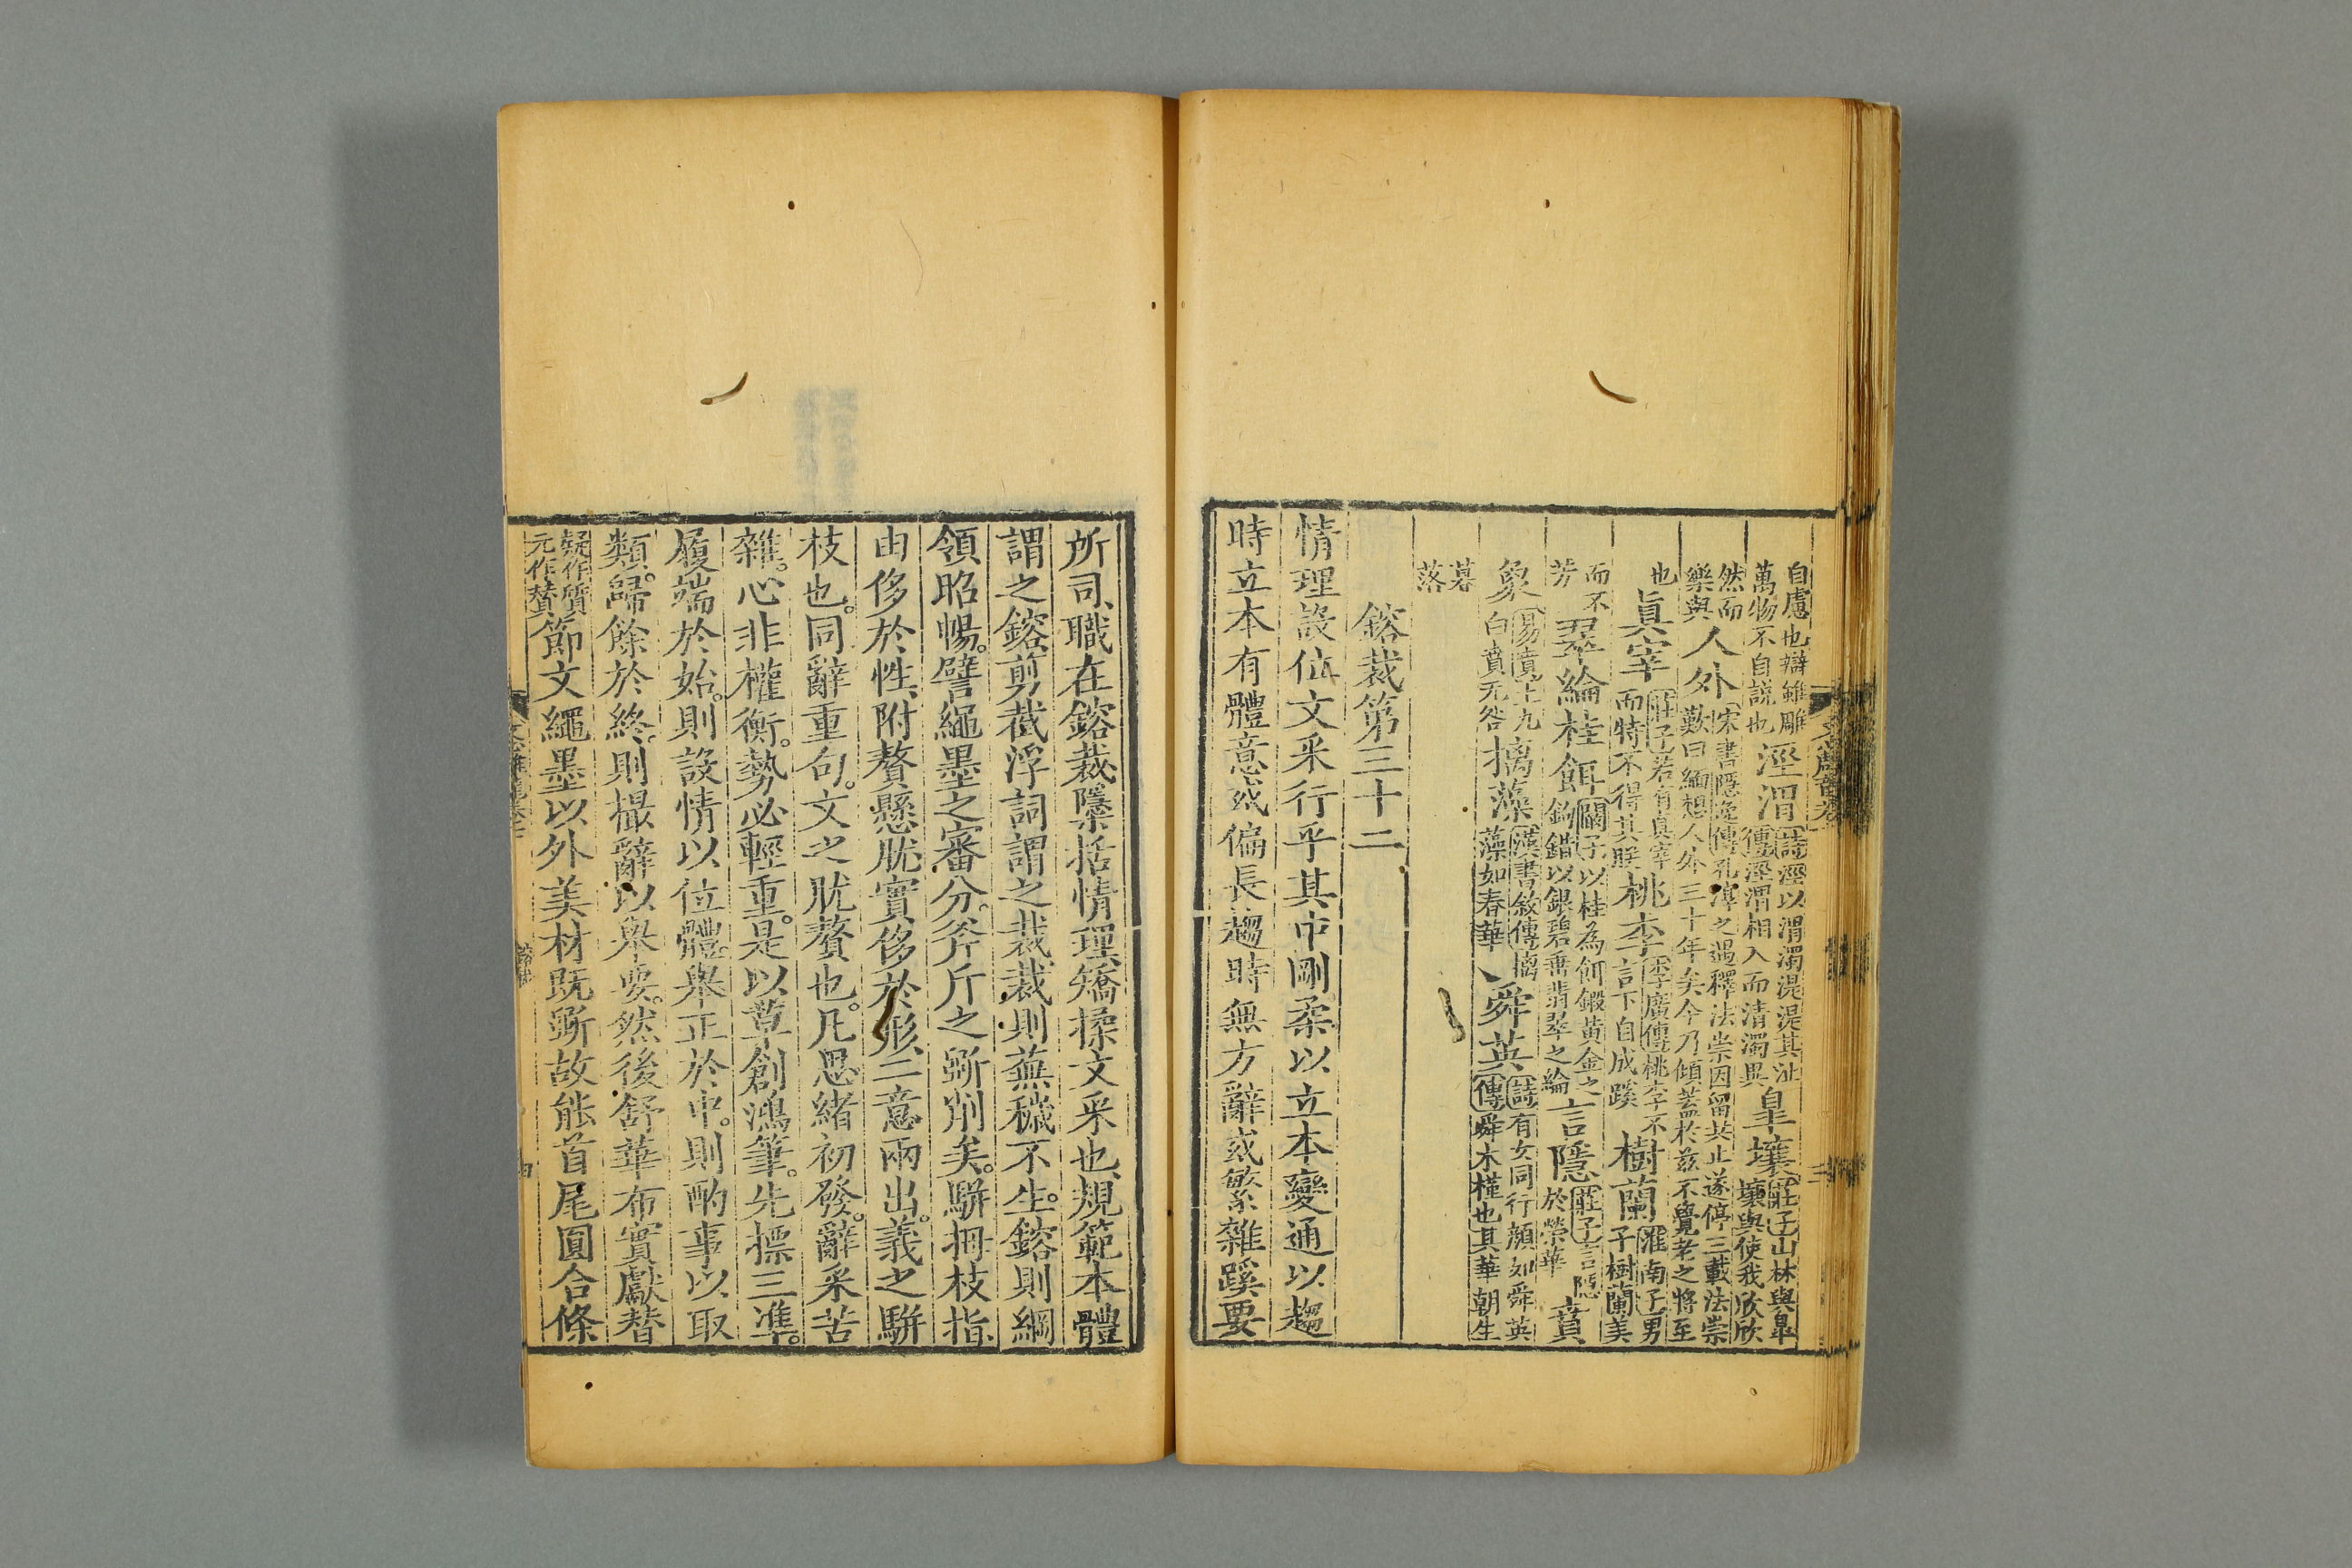 自慮也辯雖雕
萬物不自說也
涇渭
詩涇以渭濁湜湜其沚
傳涇渭相入而清濁異
皐壤
莊子山林與臯
壤與使我欣欣
然而
樂與
人外
宋書隱逸傳孔淳之遇釋法崇因留共止遂停三載法崇
歎曰緬想人外三十年矣今乃傾蓋於茲不覺老之將至
也
眞宰
莊子若有真宰
而特不得其朕
桃李
李廣傳桃李不
言下自成蹊
樹蘭
淮南子男
子樹蘭美
而不
芳
翠綸桂餌
闕子以桂為餌鍛黃金之
鉤錯以銀碧垂翡翠之綸
言隱
莊子言隱
於榮華
賁
象
易賁上九
白賁无咎
摛藻
漢書敘傳摛
藻如春華
舜英
詩有女同行顏如舜英
傳舜木槿也其華朝生
暮
落
鎔裁第三十二
情理設位文采行乎其中剛柔以立本變通以趨
時立本有體意或偏長趨時無方辭或繁雜蹊要
所司職在鎔裁櫽括情理矯揉文采也規範本體
謂之鎔剪裁浮詞謂之裁裁則蕪穢不生鎔則綱
領昭暢譬繩墨之審分斧斤之斲削矣駢拇枝指
由侈於性附贅懸肬實侈於形二意兩出義之駢
枝也同辭重句文之肬贅也凡思緒初發辭采苦
雜心非權衡勢必輕重是以草創鴻筆先標三準
履端於始則設情以位體舉正於中則酌事以取
類歸餘於終則撮辭以舉要然後舒華布實獻替
疑作質
元作贊
節文繩墨以外美材既斲故能首尾圓合條